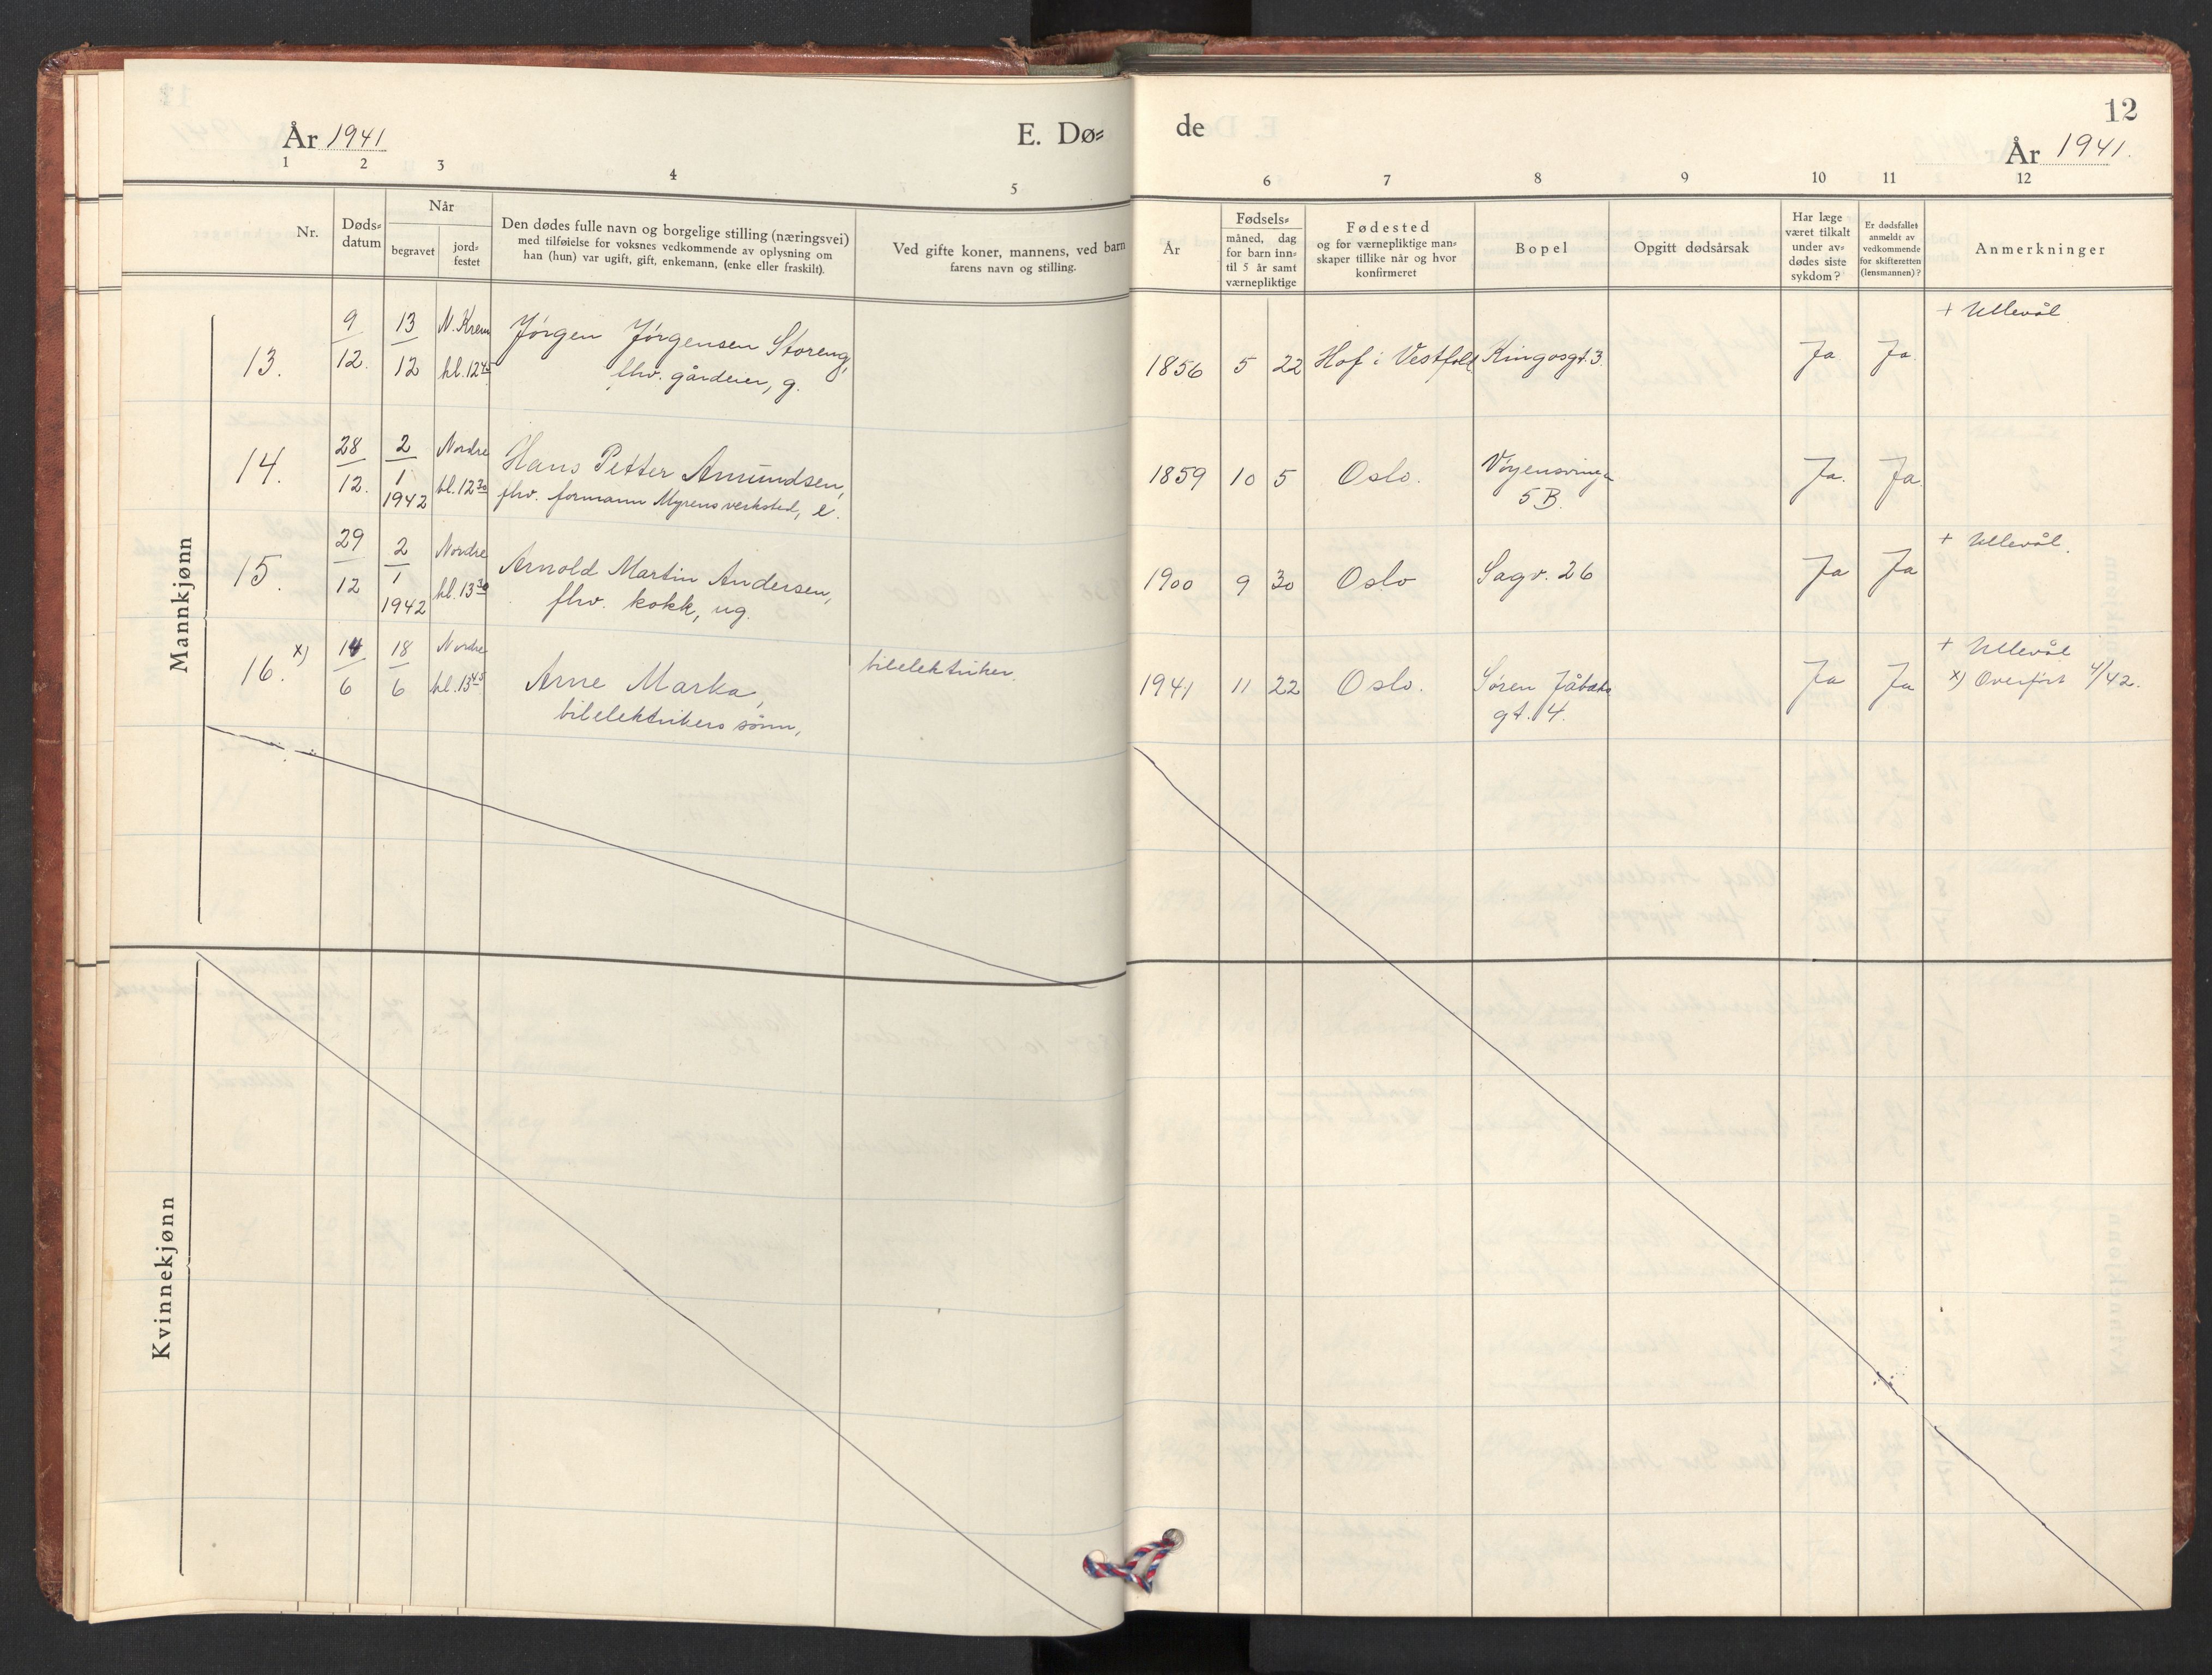 12
År 1941
E. Dø=
de
År 1941.
1 2 3 4 5
6 7 8 9 10 11 12
Nr.
Døds=
datum
Når
begravet
jord=
festet
Den dødes fulle navn og borgelige stilling (næringsvei)
med tilføielse for voksnes vedkommende av oplysning om
han (hun) var ugift, gift, enkemann, (enke eller fraskilt).
Ved gifte koner, mannens, ved barn
farens navn og stilling.
År
Fødsels=
måned, dag
for barn inn=
til 5 år samt
værnepliktige
Fødested
og for værnepliktige man=
skaper tillike når og hvor
konfirmeret
Bopel
Opgitt dødsårsak
Har læge
været tilkalt
under av=
dødes siste
sykdom?
Er dødsfallet
anmeldt av
vedkommende
for skifteretten
(lensmannen)?
Anmerkninger
Mannkjønn
13.
9
12.
13
12
N. Krem
kl. 12 45
Jørgen Jørgensen Storeng,
fhv. gårdeier, g.
1856 5 22 Hof i Vestfold Kingosgt. 3 Ja Ja.
+ Ullevål
14.
28
12.
2
1
1942
Nordre
kl. 12 30
Hans Petter Amundsen,
fhv. formann Myrens verksted, e.
1859 10 5 Oslo.
Vøyensvinga
5 B.
Ja. Ja.
15.
29
12
2
1
1942
Nordre
kl. 13 30
Arnold Martin Andersen,
fhv. kokk, ug.
1900 9 30 Oslo Sagv. 26 Ja Ja
+ Ullevål.
16. x)
14
6
18
6
Nordre
kl. 13 45
Arne Marka,
bilelektrikers sønn,
bilelektriker.
1941 11 22 Oslo.
Søren Jåbæks
gt. 4.
Ja Ja
+ Ullevål
x) Overført 4/42.
Kvinnekjønn